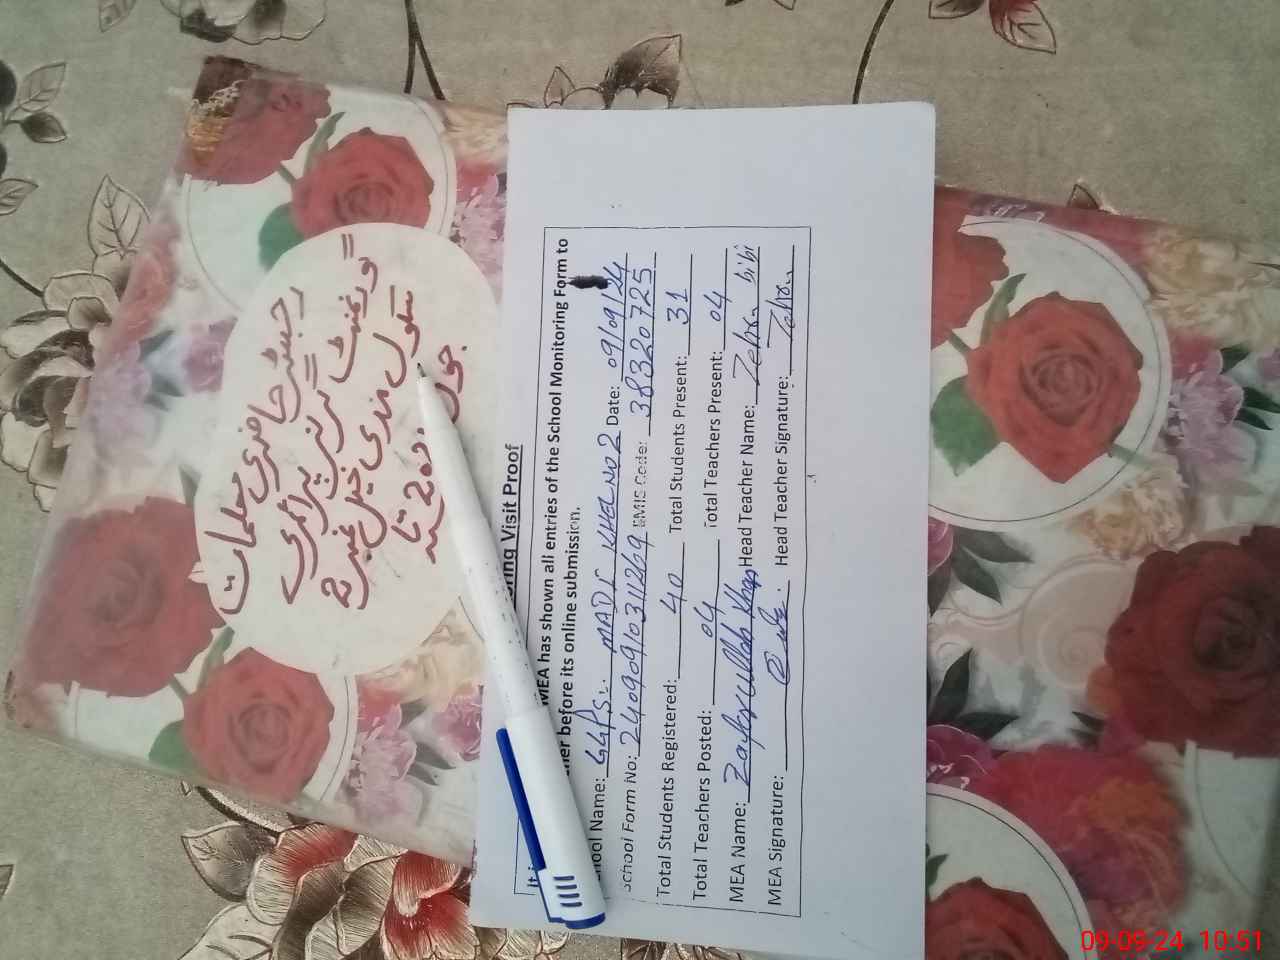 رجسٹر حاضری معلمات
گورنمنٹ گرلز پرائمری
سکول مندی خیل نمبر 2
ring Visit Proof
MEA has shown all entries of the School Monitoring Form to
before its online submission.
School Name: GGPS. MADI KHEL NO 2 Date: 09/09/24
School Form No: EMIS Code: 38320725
Total Students Registered: 40 Total Students Present: 31
Total Teachers Posted: 04 Total Teachers Present: 04
MEA Name: Zafrullah Khan Head Teacher Name: Zehra bibi
MEA Signature: Head Teacher Signature: Zehra
09-09-24 10:51